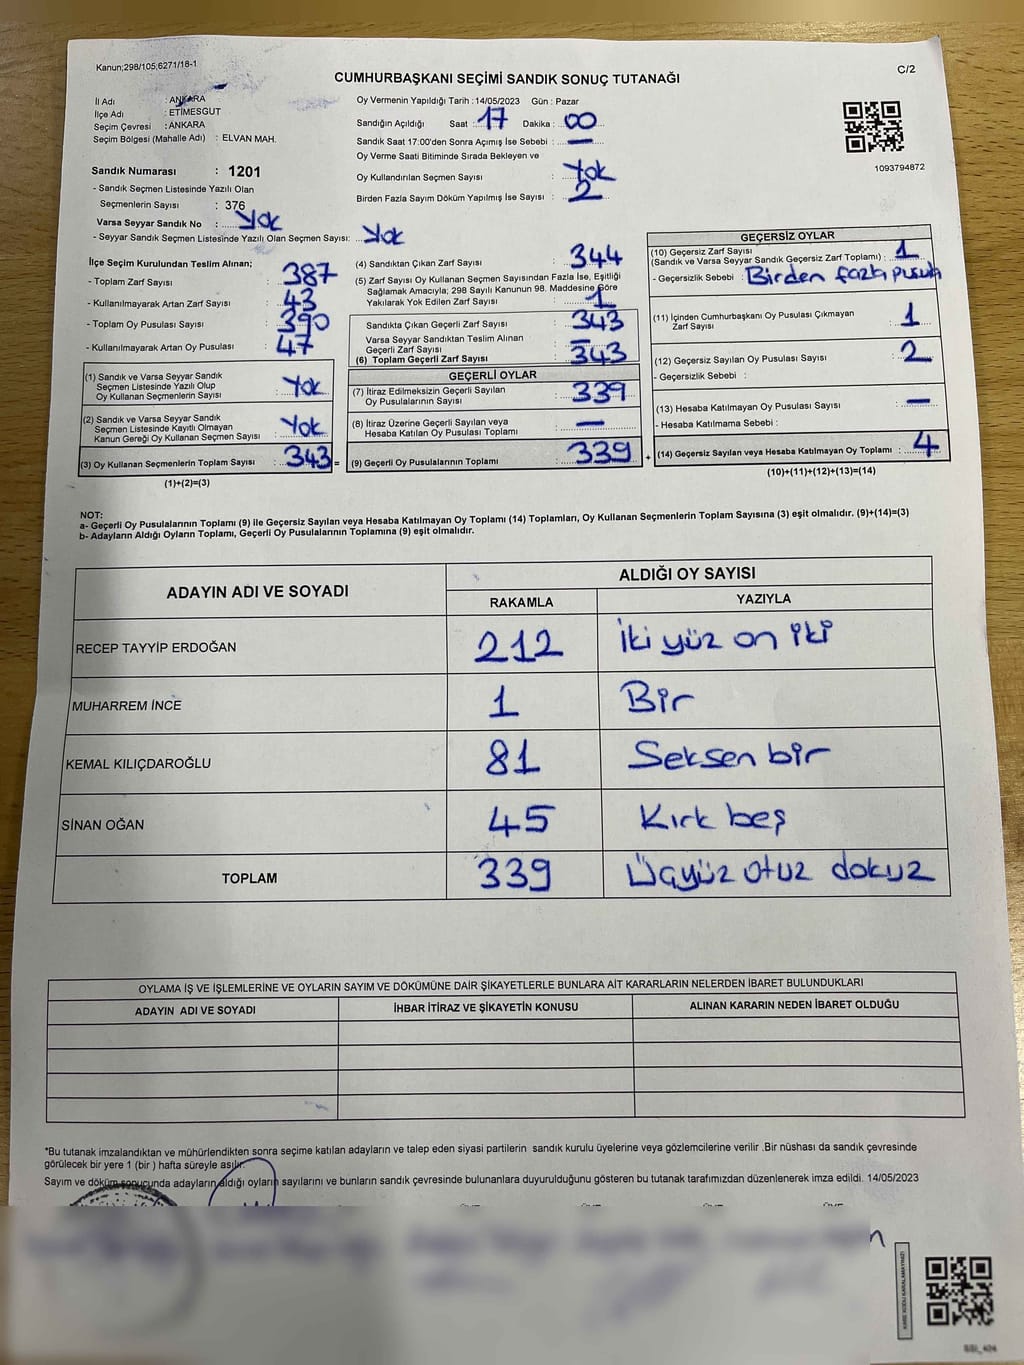 Kanun;298/105,6271/18-1
C/2
CUMHURBAŞKANI SEÇİMİ SANDIK SONUÇ TUTANAĞI
İl Adı : ANKARA
İlçe Adı : ETİMESGUT
Seçim Çevresi : ANKARA
Seçim Bölgesi (Mahalle Adı) : ELVAN MAH.
Sandık Numarası : 1201
- Sandık Seçmen Listesinde Yazılı Olan
Seçmenlerin Sayısı : 376
Varsa Seyyar Sandık No : Yok
- Seyyar Sandık Seçmen Listesinde Yazılı Olan Seçmen Sayısı: Yok
Oy Vermenin Yapıldığı Tarih : 14/05/2023 Gün : Pazar
Sandığın Açıldığı Saat : 17 Dakika : 00
Sandık Saat 17:00'den Sonra Açımış İse Sebebi : —
Oy Verme Saati Bitiminde Sırada Bekleyen ve
Oy Kullandırılan Seçmen Sayısı : Yok
Birden Fazla Sayım Döküm Yapılmış İse Sayısı : 2
1093794872
İlçe Seçim Kurulundan Teslim Alınan;
- Toplam Zarf Sayısı : 387
- Kullanılmayarak Artan Zarf Sayısı : 43
- Toplam Oy Pusulası Sayısı : 390
- Kullanılmayarak Artan Oy Pusulası : 47
(1) Sandık ve Varsa Seyyar Sandık
Seçmen Listesinde Yazılı Olup
Oy Kullanan Seçmenlerin Sayısı : Yok
(2) Sandık ve Varsa Seyyar Sandık
Seçmen Listesinde Kayıtlı Olmayan
Kanun Gereği Oy Kullanan Seçmen Sayısı : Yok
(3) Oy Kullanan Seçmenlerin Toplam Sayısı : 343 =
(1)+(2)=(3)
(4) Sandıktan Çıkan Zarf Sayısı : 344
(5) Zarf Sayısı Oy Kullanan Seçmen Sayısından Fazla İse, Eşitliği
Sağlamak Amacıyla; 298 Sayılı Kanunun 98. Maddesine Göre
Yakılarak Yok Edilen Zarf Sayısı : 1
Sandıkta Çıkan Geçerli Zarf Sayısı : 343
Varsa Seyyar Sandıktan Teslim Alınan
Geçerli Zarf Sayısı : —
(6) Toplam Geçerli Zarf Sayısı : 343
GEÇERLİ OYLAR
(7) İtiraz Edilmeksizin Geçerli Sayılan
Oy Pusulalarının Sayısı : 339
(8) İtiraz Üzerine Geçerli Sayılan veya
Hesaba Katılan Oy Pusulası Toplamı : —
(9) Geçerli Oy Pusulalarının Toplamı : 339 +
GEÇERSİZ OYLAR
(10) Geçersiz Zarf Sayısı
(Sandık ve Varsa Seyyar Sandık Geçersiz Zarf Toplamı) : 1
- Geçersizlik Sebebi : Birden fazla pusula
(11) İçinden Cumhurbaşkanı Oy Pusulası Çıkmayan
Zarf Sayısı : 1
(12) Geçersiz Sayılan Oy Pusulası Sayısı : 2
- Geçersizlik Sebebi :
(13) Hesaba Katılmayan Oy Pusulası Sayısı : —
- Hesaba Katılmama Sebebi :
(14) Geçersiz Sayılan veya Hesaba Katılmayan Oy Toplamı : 4
(10)+(11)+(12)+(13)=(14)
NOT:
a- Geçerli Oy Pusulalarının Toplamı (9) ile Geçersiz Sayılan veya Hesaba Katılmayan Oy Toplamı (14) Toplamları, Oy Kullanan Seçmenlerin Toplam Sayısına (3) eşit olmalıdır. (9)+(14)=(3)
b- Adayların Aldığı Oyların Toplamı, Geçerli Oy Pusulalarının Toplamına (9) eşit olmalıdır.
ADAYIN ADI VE SOYADI ALDIĞI OY SAYISI
RAKAMLA YAZIYLA
RECEP TAYYİP ERDOĞAN 212 İki yüz on iki
MUHARREM İNCE 1 Bir
KEMAL KILIÇDAROĞLU 81 Seksen bir
SİNAN OĞAN 45 Kırk beş
TOPLAM 339 Üçyüz otuz dokuz
OYLAMA İŞ VE İŞLEMLERİNE VE OYLARIN SAYIM VE DÖKÜMÜNE DAİR ŞİKAYETLERLE BUNLARA AİT KARARLARIN NELERDEN İBARET BULUNDUKLARI
ADAYIN ADI VE SOYADI İHBAR İTİRAZ VE ŞİKAYETİN KONUSU ALINAN KARARIN NEDEN İBARET OLDUĞU
*Bu tutanak imzalandıktan ve mühürlendikten sonra seçime katılan adayların ve talep eden siyasi partilerin sandık kurulu üyelerine veya gözlemcilerine verilir .Bir nüshası da sandık çevresinde
görülecek bir yere 1 (bir ) hafta süreyle asılır.
Sayım ve döküm sonucunda adayların aldığı oyların sayılarını ve bunların sandık çevresinde bulunanlara duyurulduğunu gösteren bu tutanak tarafımızdan düzenlenerek imza edildi. 14/05/2023
KARE KODU KARALAMAYINIZ!